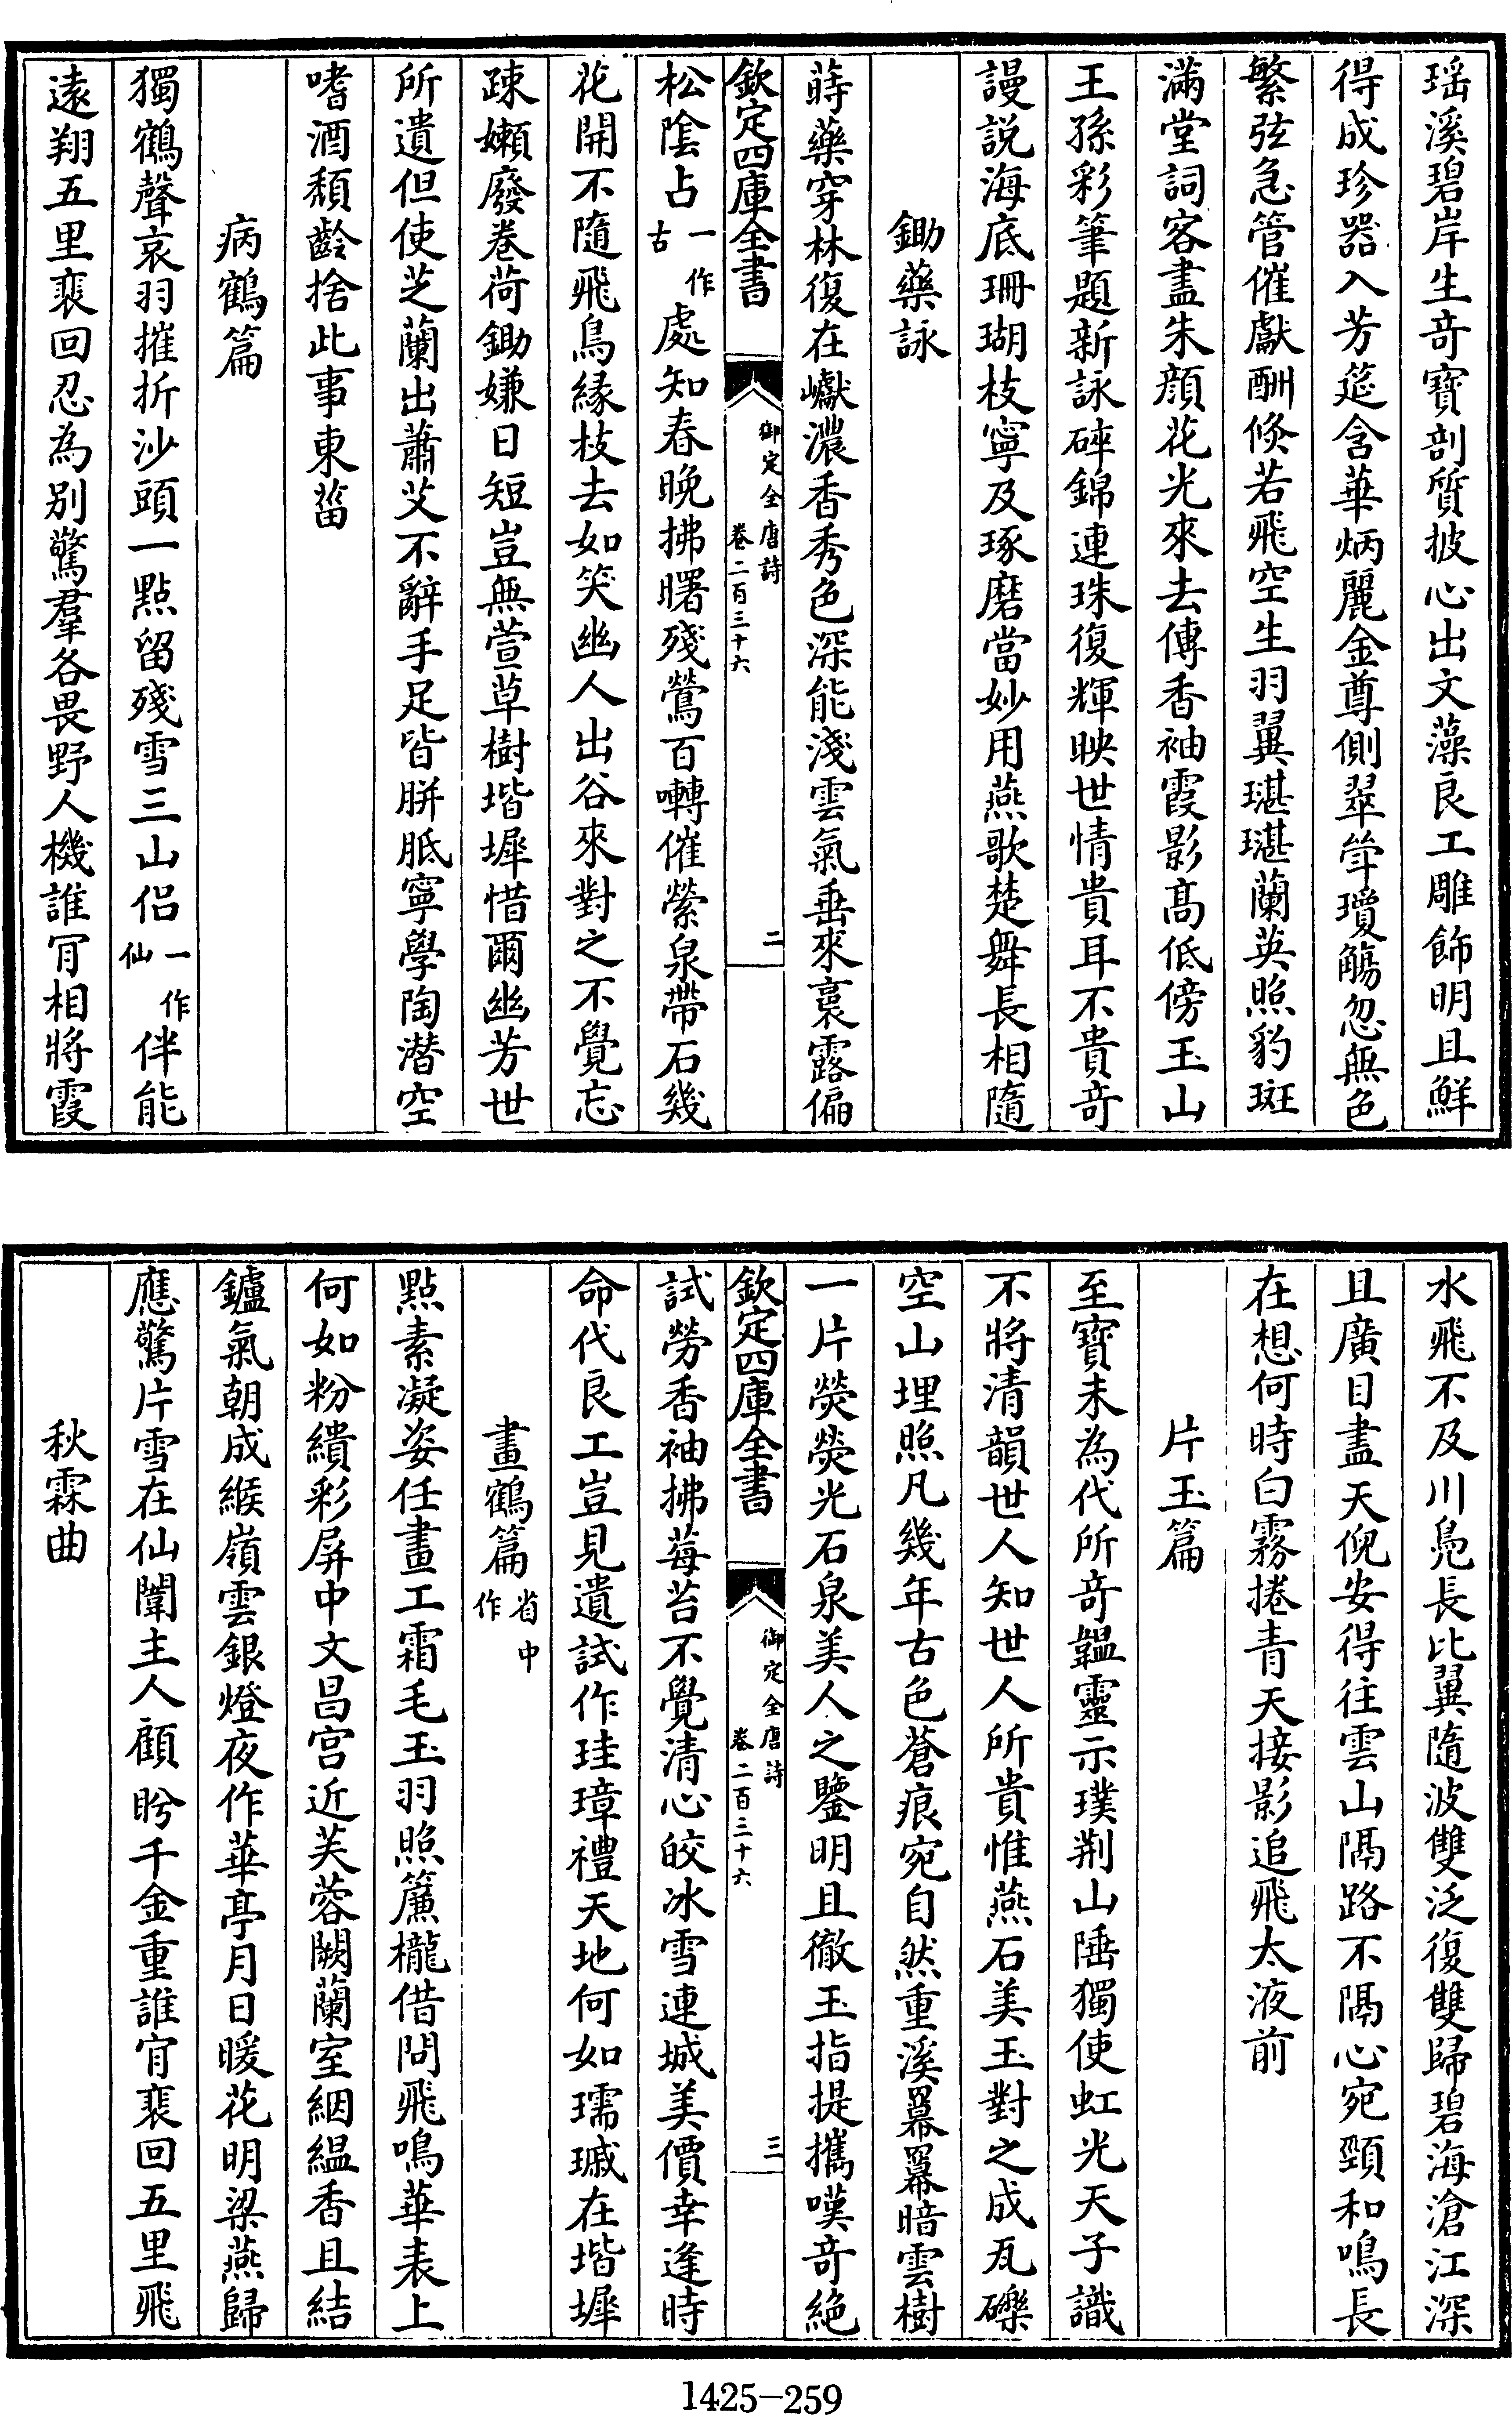 瑶溪碧岸生竒寶剖質披心出文藻良工雕飾明且鮮
得成珍器入芳筵含華炳麗金尊側翠斝瓊觴忽無色
繁弦急管催獻酬倐若飛空生羽翼湛湛蘭英照豹斑
滿堂詞客盡朱顔花光來去傳香袖霞影髙低傍玉山
王孫彩筆題新詠碎錦連珠復輝映世情貴耳不貴竒
謾説海底珊瑚枝寧及琢磨當妙用燕歌楚舞長相隨
鋤藥詠
蒔藥穿林復在巘濃香秀色深能淺雲氣垂來裛露偏
松隂占一作古處知春晚拂曙殘鶯百囀催縈泉帶石幾
花開不隨飛鳥縁枝去如笑幽人出谷來對之不覺忘
疎嬾廢卷荷鋤嫌日短豈無萱草樹堦墀惜爾幽芳世
所遺但使芝蘭出蕭艾不辭手足皆胼胝寧學陶潛空
嗜酒頽齡捨此事東菑
病鶴篇
獨鶴聲哀羽摧折沙頭一點留殘雪三山侣一作仙伴能
逺翔五里裴回忍為别驚羣各畏野人機誰肎相將霞
欽定四庫全書
御定全唐詩
卷二百三十六
二
水飛不及川鳬長比翼隨波雙泛復雙歸碧海滄江深
且廣目盡天倪安得徃雲山隔路不隔心宛頸和鳴長
在想何時白霧捲青天接影追飛太液前
片玉篇
至寶未為代所竒韞靈示璞荆山陲獨使虹光天子識
不將清韻世人知世人所貴惟燕石美玉對之成瓦礫
空山埋照凡幾年古色蒼痕宛自然重溪冪冪暗雲樹
一片熒熒光石泉美人之鑒明且徹玉指提攜嘆竒絶
試勞香袖拂莓苔不覺清心皎冰雪連城美價幸逢時
命代良工豈見遺試作珪璋禮天地何如瓀珹在堦墀
畫鶴篇省中作
點素凝姿任畫工霜毛玉羽照簾櫳借問飛鳴華表上
何如粉繢彩屏中文昌宫近芙蓉闕蘭室絪緼香且結
鑪氣朝成緱嶺雲銀燈夜作華亭月日暖花明梁燕歸
應驚片雪在仙闈主人顧盻千金重誰肎裴回五里飛
秋霖曲
欽定四庫全書
御定全唐詩
卷二百三十六
三
1425-259